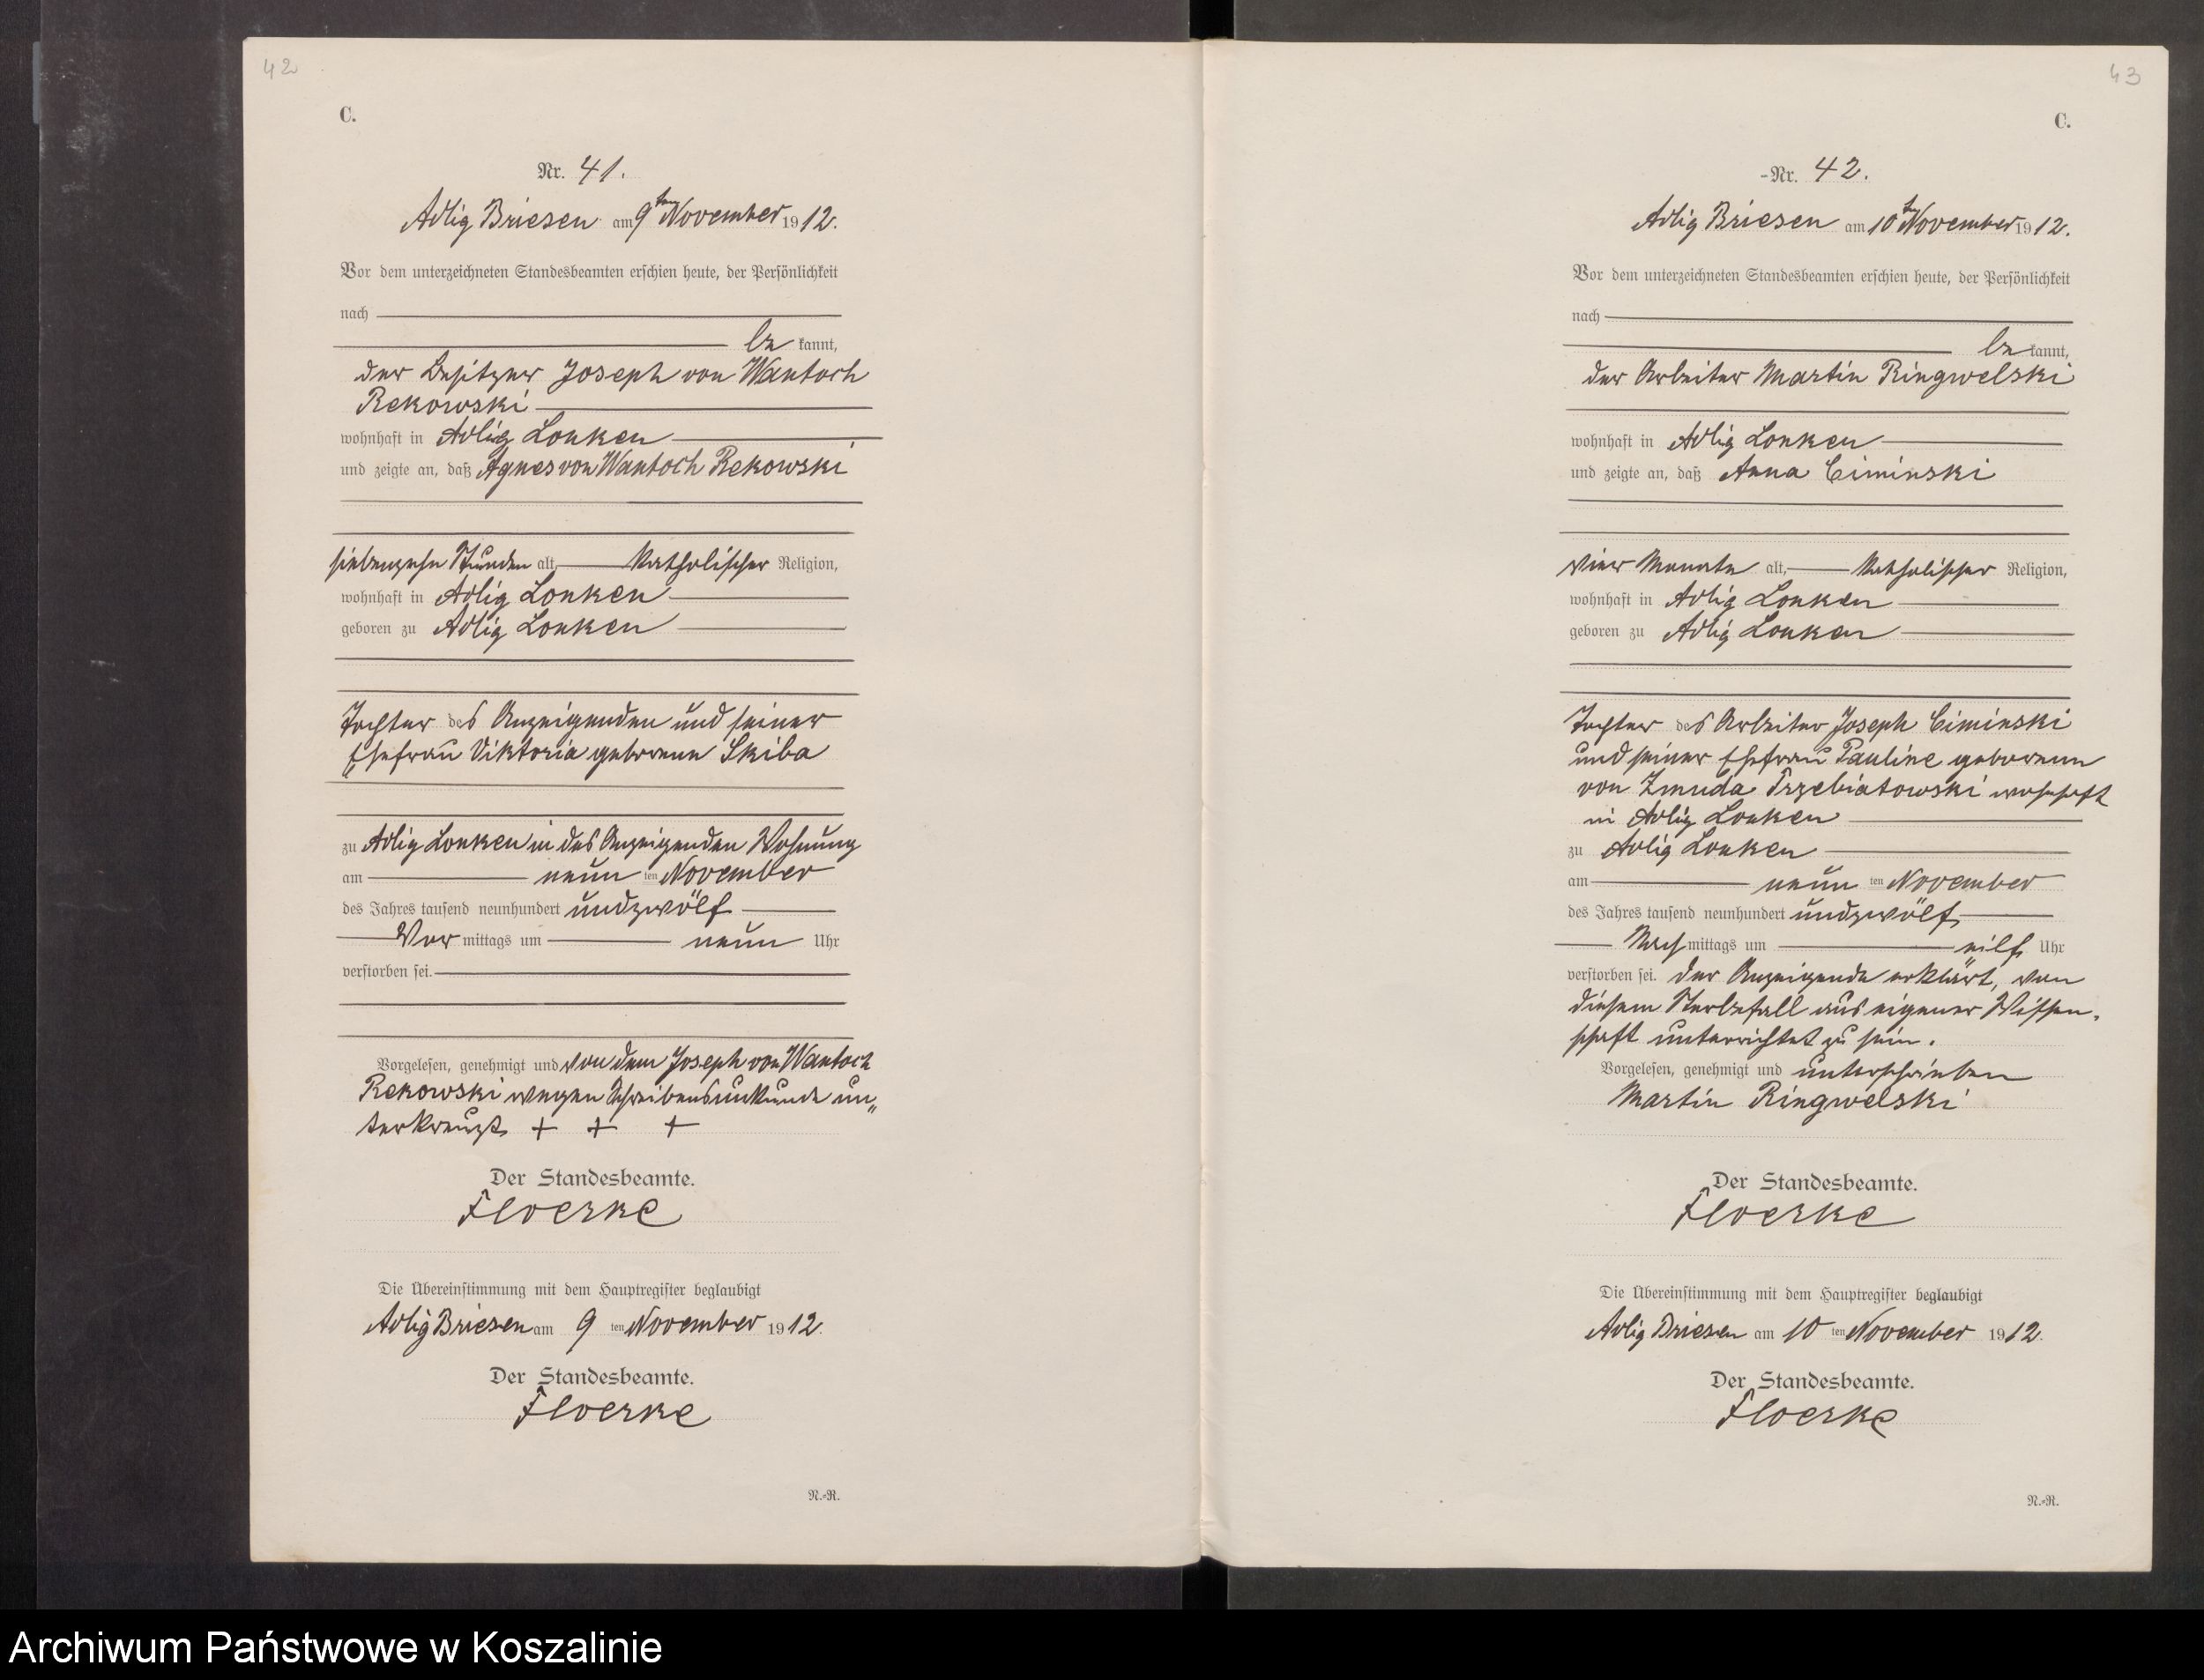 42
C.
Nr. 41.
Adlig Briesen am 9ten November 1912.
Vor dem unterzeichneten Standesbeamten erschien heute, der Persönlichkeit
nach
be kannt,
der Besitzer Joseph von Wantoch
Rekowski
wohnhaft in Adlig Lonken
und zeigte an, daß Agnes von Wantoch Rekowski
siebenzehn Stunden alt, katholischer Religion,
wohnhaft in Adlig Lonken
geboren zu Adlig Lonken
Tochter des Anzeigenden und seiner
Ehefrau Viktoria geborene Skiba
zu Adlig Lonken in des Anzeigenden Wohnung
am neun ten November
des Jahres tausend neunhundert undzwölf
Vor mittags um neun Uhr
verstorben sei.
Vorgelesen, genehmigt und von dem Joseph von Wantoch
Rekowski wegen Schreibensunkunde un„
terkreuzt + + +
Der Standesbeamte.
Floerke
Die Übereinstimmung mit dem Hauptregister beglaubigt
Adlig Briesen am 9 ten November 1912.
Der Standesbeamte.
Floerke
N.-R.
43
C.
Nr. 42.
Adlig Briesen am 10ten November 1912.
Vor dem unterzeichneten Standesbeamten erschien heute, der Persönlichkeit
nach
be kannt,
der Arbeiter Martin Ringwelski
wohnhaft in Adlig Lonken
und zeigte an, daß Anna Ciminski
vier Monate alt, katholischer Religion,
wohnhaft in Adlig Lonken
geboren zu Adlig Lonken
Tochter des Arbeiter Joseph Ciminski
und seiner Ehefrau Pauline geborenen
von Zmuda Trzebiatowski wohnhaft
in Adlig Lonken
zu Adlig Lonken
am neun ten November
des Jahres tausend neunhundert undzwölf
Nach mittags um eilf Uhr
verstorben sei. Der Anzeigende erklärt, von
diesem Sterbefall aus eigener Wissen„
schaft unterrichtet zu sein.
Vorgelesen, genehmigt und unterschrieben
Martin Ringwelski
Der Standesbeamte.
Floerke
Die Übereinstimmung mit dem Hauptregister beglaubigt
Adlig Briesen am 10 ten November 1912.
Der Standesbeamte.
Floerke
N.-R.
Archiwum Państwowe w Koszalinie